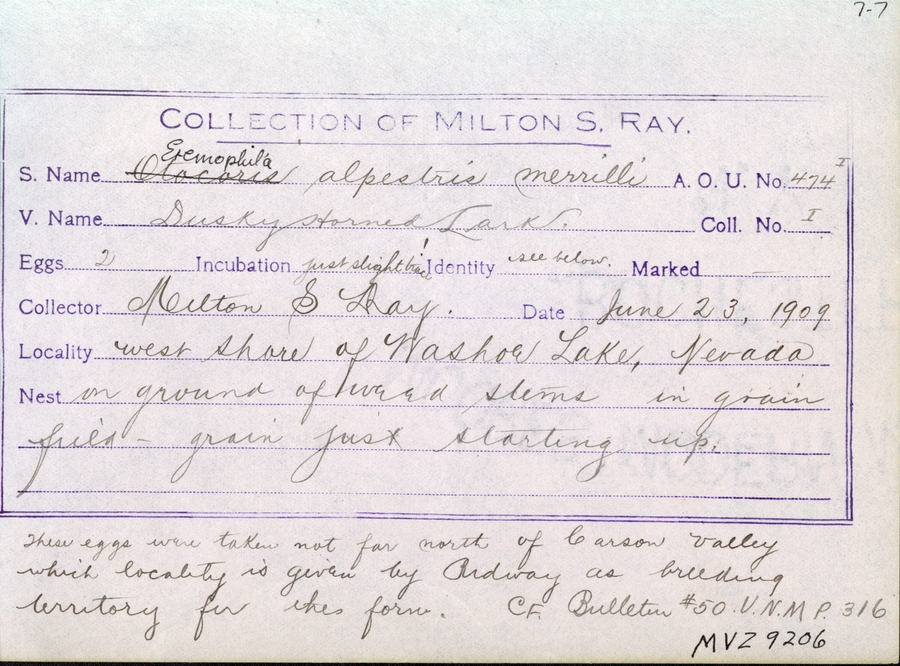 7-7
COLLECTION OF MILTON S. RAY.
Eremophila
S. Name Otocoris alpestris merrilli A. O. U. No. 474 I
V. Name Dusky Horned Lark. Coll. No. I
Eggs 2 Incubation just slight Identity see below. Marked —
Collector Milton S Ray. Date June 23, 1909
Locality west shore of Washoe Lake, Nevada
Nest on ground of weed stems in grain
field – grain just starting up.
These eggs were taken not far north of Carson Valley
which locality is given by Ridway as breeding
territory for this form. CF. Bulletin #50 U.N.M P. 316
MVZ 9206